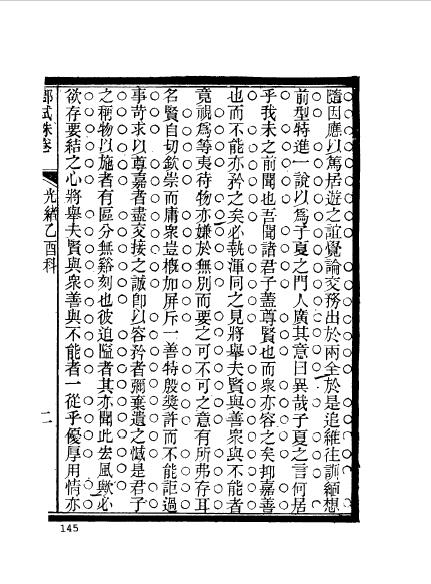 隨因應以篤居遊之誼覺論交務出於兩全於是追維往訓緬想
前型特進一說以爲子夏之門人廣其意曰異哉子夏之言何居
乎我未之前聞也吾聞諸君子蓋尊賢也而衆亦容之矣抑嘉善
也而不能亦矜之矣必執渾同之見將舉夫賢與善衆與不能者
竟視爲等夷待物亦嫌於無別而要之可不可之意有所弗存耳
名賢自切欽崇而庸衆豈槪加屏斥一善特殷奬許而不能詎過
事苛求以尊嘉者盡交接之誠卽以容矜者彌棄遺之憾是君子
之稱物以施者有區分無谿刻也彼迫隘者其亦聞此去風歟必
欲存要結之心將舉夫賢與衆善與不能者一從乎優厚用情亦
鄉試硃卷
光緒乙酉科
二
145